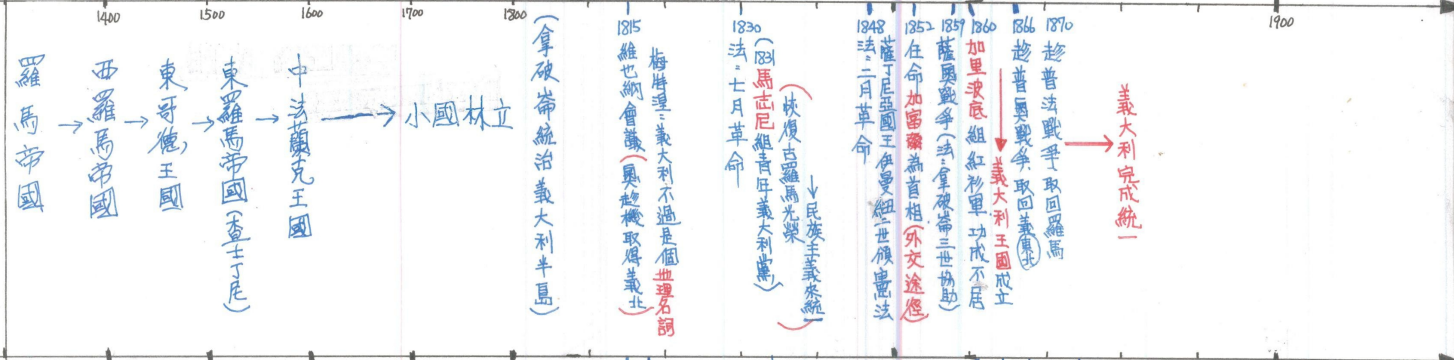 1400
1500
1600
1700
1800
1900
羅馬帝國
→西羅馬帝國
→東哥德王國
→東羅馬帝國(查士丁尼)
→中法蘭克王國
→小國林立
(拿破崙統治義大利半島)
1815
維也納會議(奧趁機取得義北)
梅特涅:義大利不過是個地理名詞
1830
法:七月革命
(1831馬志尼組青年義大利黨)
(恢復古羅馬光榮
↓民族主義來統一)
1848
法:二月革命
薩丁尼亞國王伊曼紐二世頒憲法
1852
任命加富爾為首相(外交途徑)
1859
薩奧戰爭(法:拿破崙三世協助)
1860
加里波底組紅衫軍功成不居
→義大利王國成立
1866
趁普奧戰爭取回義東北
1870
趁普法戰爭取回羅馬
→義大利完成統一